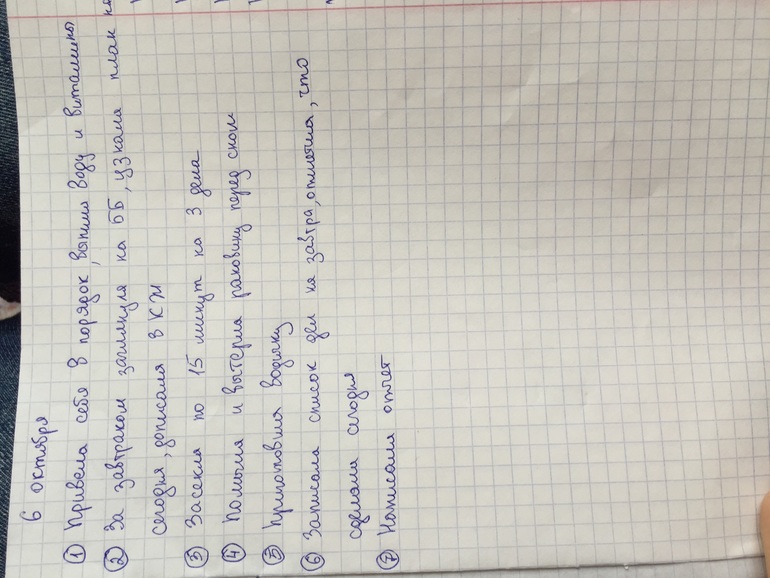 6 октября
① Привела себя в порядок, выпила воду и витамины
② За завтраком заглянула на ББ, узнала план на
сегодня, дописала в КЖ
③ Засекла по 15 минут на 3 дела
④ Помыла и вытерла раковину перед сном
⑤ Приготовила водичку
⑥ Записала список дел на завтра, отметила, что
сделала сегодня
⑦ Написала отчет